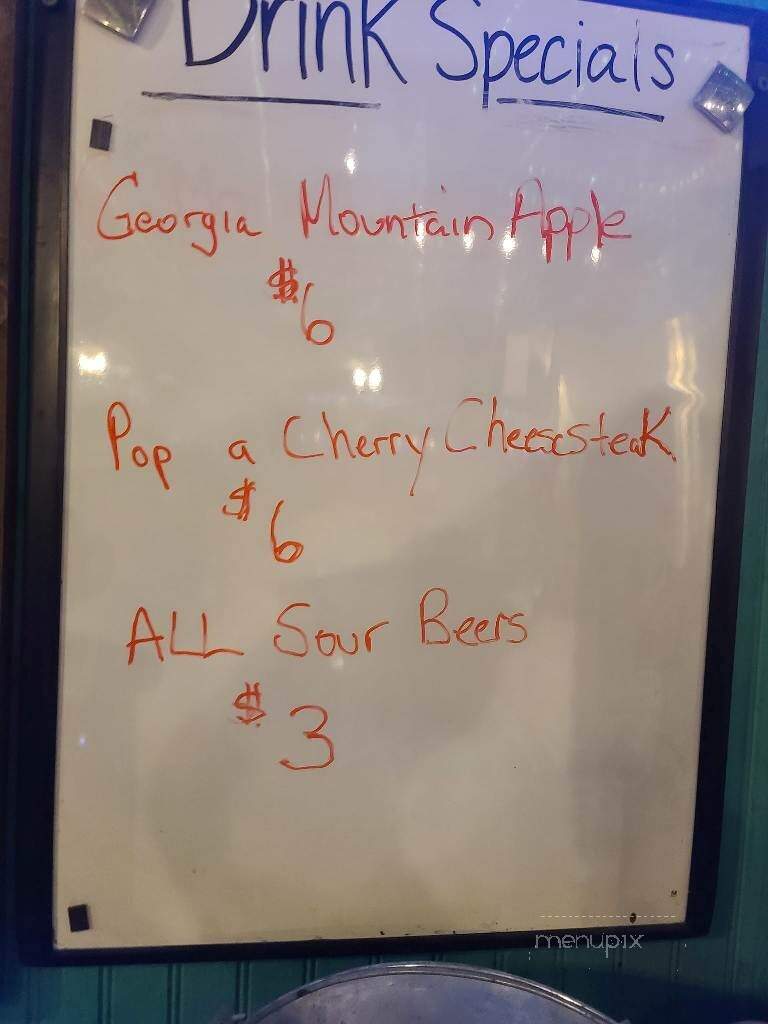 Drink Specials
Georgia Mountain Apple
$6
Pop a Cherry Cheesesteak
$6
ALL Sour Beers
$3
menupix